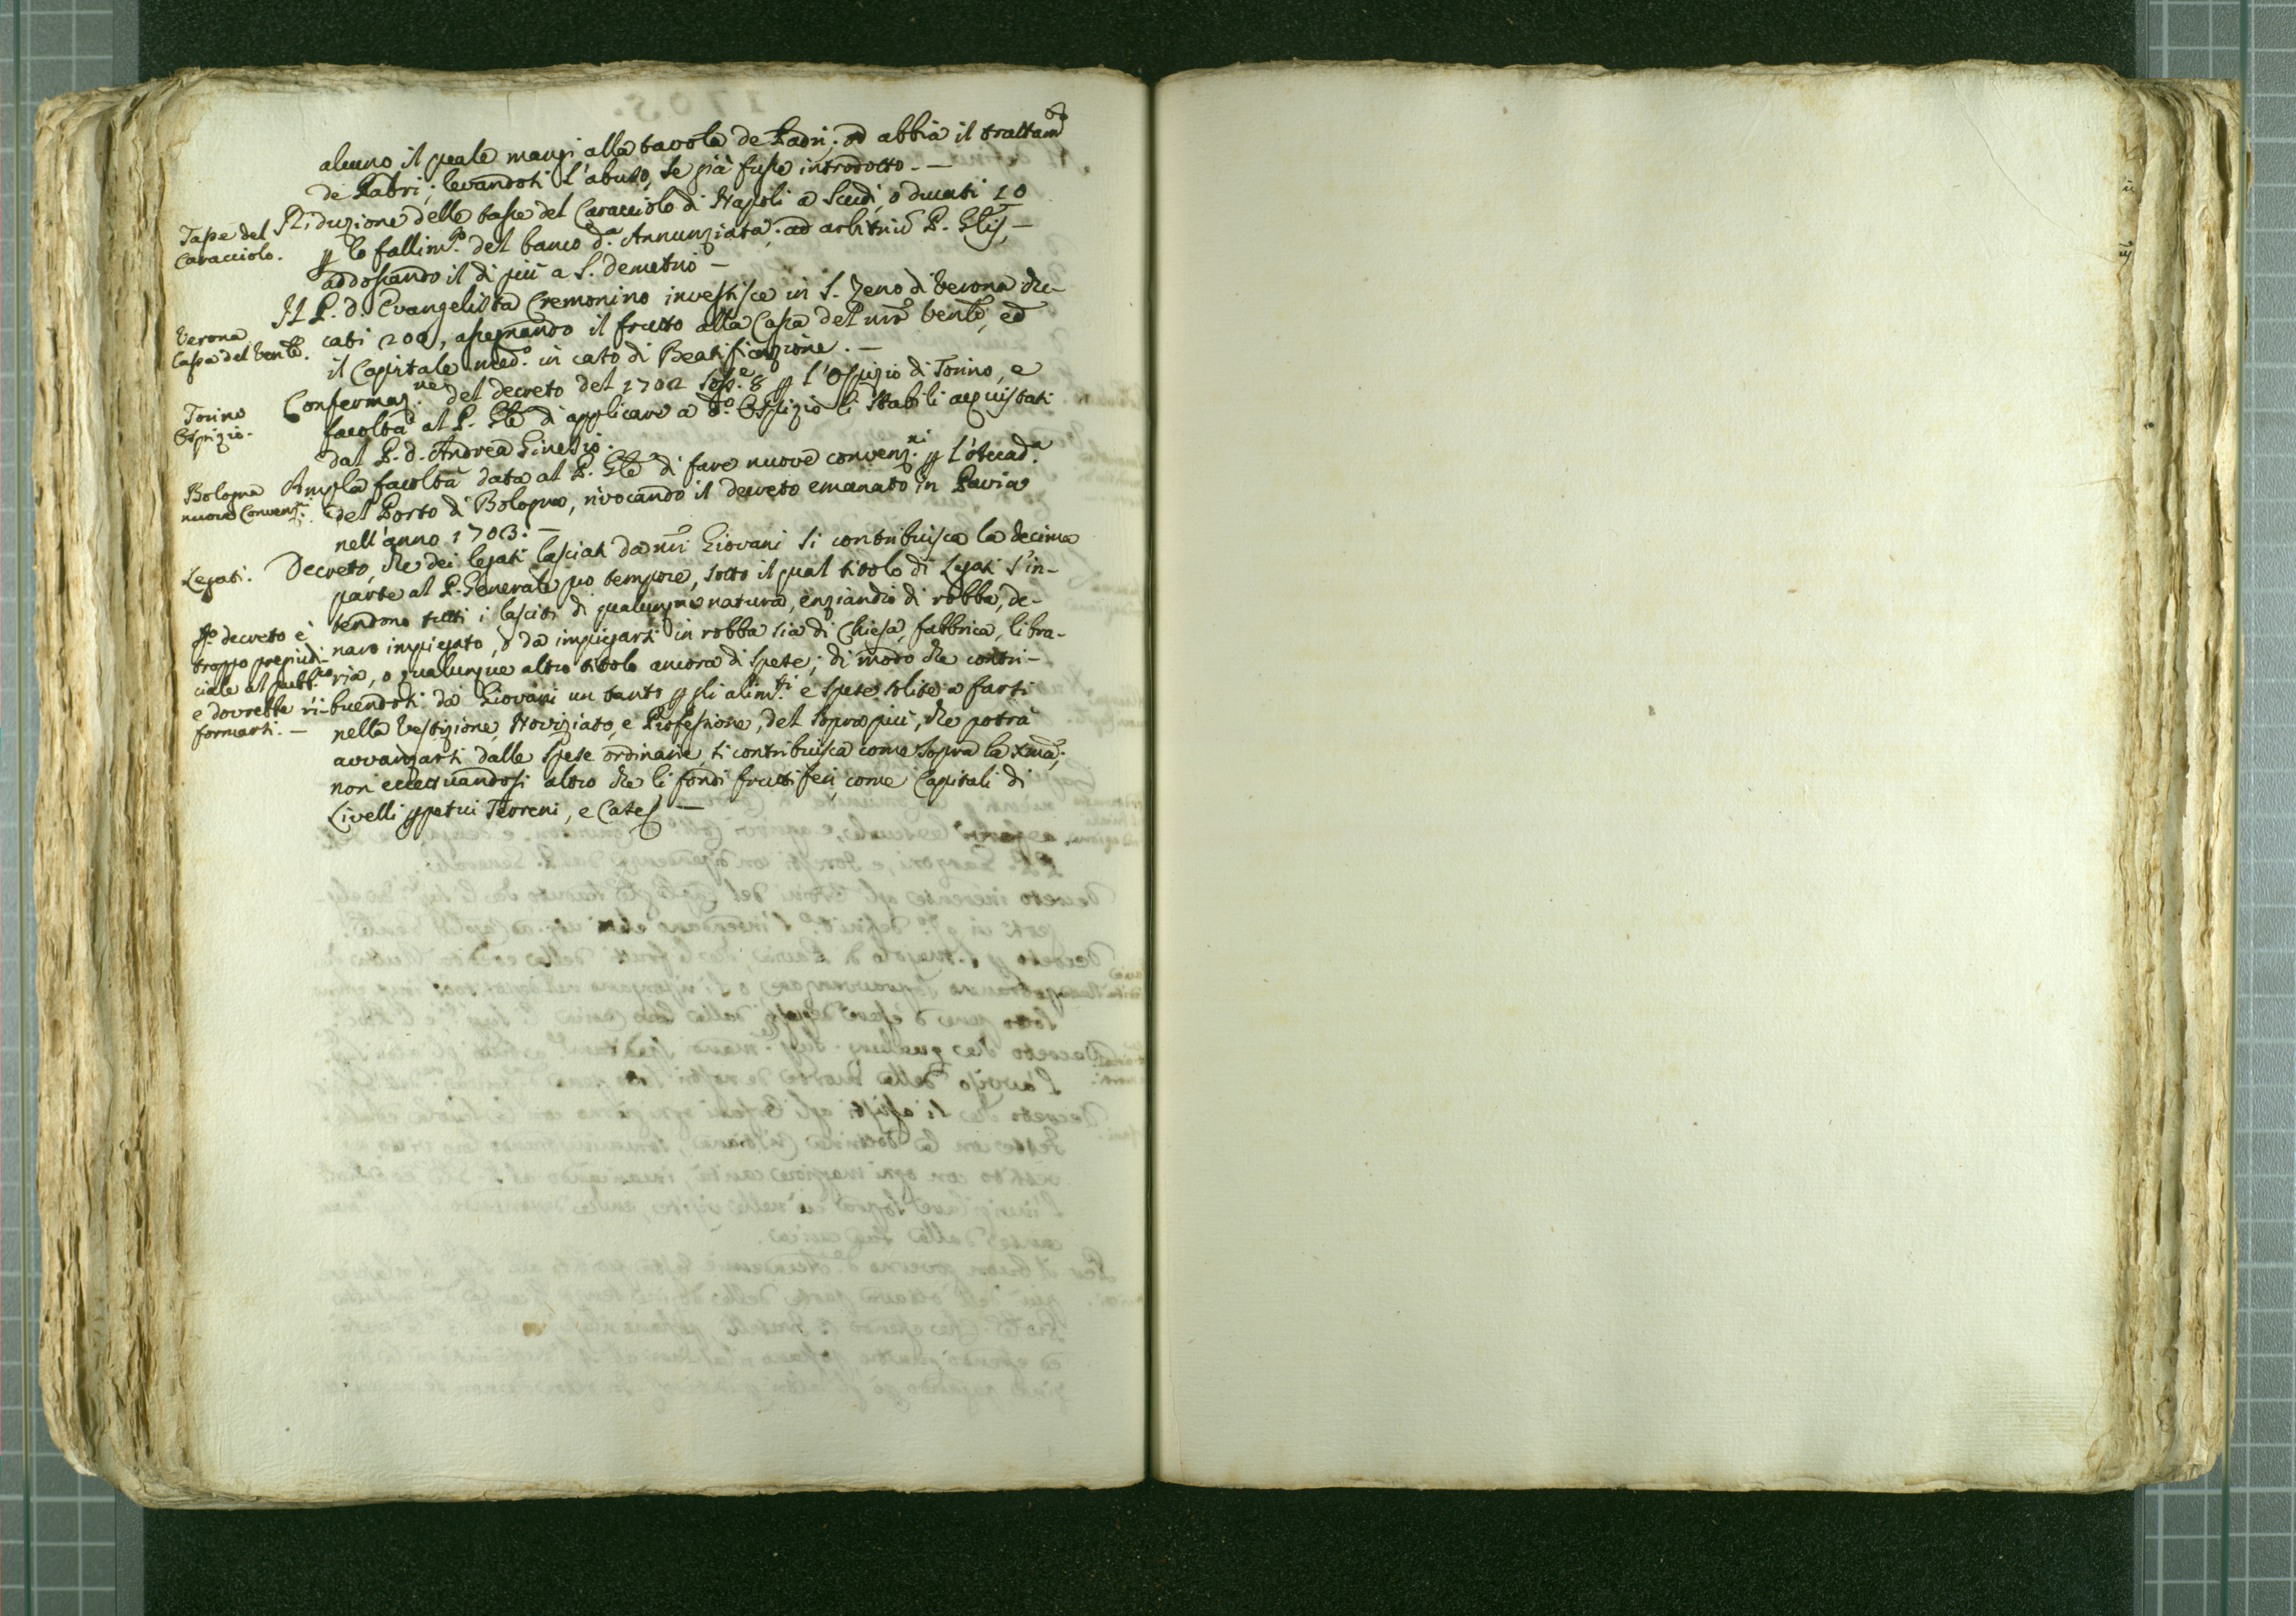 alcuno il quale mangi alla tavola de Padri; od abbia il trattam.to
de Padri; levandosi l'abuso, se già fusse introdotto. —
Tasse del
Caracciolo.
Riduzione delle tasse del Caracciolo di Napoli a Scudi, o ducati 10
p lo fallim.to del banco d.a Annunziata; ad arbitriũ P. Glis, —
addossando il di più a S. demetrio —
Verona
Cassa del Vente.
Il P. d. Evangelista Cremonino investisce in S. Zeno di Verona du-
cati 200, assegnando il frutto alla Cassa del nrõ Vente, ed
il Capitale med.o in caso di Beatificazione. —
Torino
Ospizio.
Confermaz.ne del decreto del 1702 Sess.e 8 p l'Ospizio di Torino, e
facoltà al P. Gle di applicare a d.o Ospizio li stabili acquistati
dal P. d. Andrea Ginesio.
Bologna
nuove Convenz.ni
Ampla facoltà data al P. Gle di fare nuove convenz.ni p l'Accad.a
del Porto di Bologna, rivocando il decreto emanato in Pavia
nell'anno 1703. —
Legati.
Decreto, che dei legati lasciati da nri Giovani si contribuisca la decima
parte al P. Generale pro tempore, sotto il qual titolo di Legati s'in-
tendono tutti i lasciti di qualunque natura, enziandio di robba, de-
naro impiegato, o da impiegarsi in robba sia di Chiesa, fabbrica, libra-
ria, o qualunque altro titolo ancora di spese; di modo che contri-
buendosi da Giovani un tanto p gli alim.ti e spese solite a farsi
nella Vestizione, Noviziato, e Professione, del sopra più, che potrà
avvanzarsi dalle spese ordinarie, si contribuisca come sopra la Xma;
non eccettuandosi altro che li fondi fruttiferi, come Capitali di
Livelli ppetui Terreni, e Case
qto decreto è
troppo pregiudi-
ciale al pubb.co
e dovrebbe ri-
formarsi. —